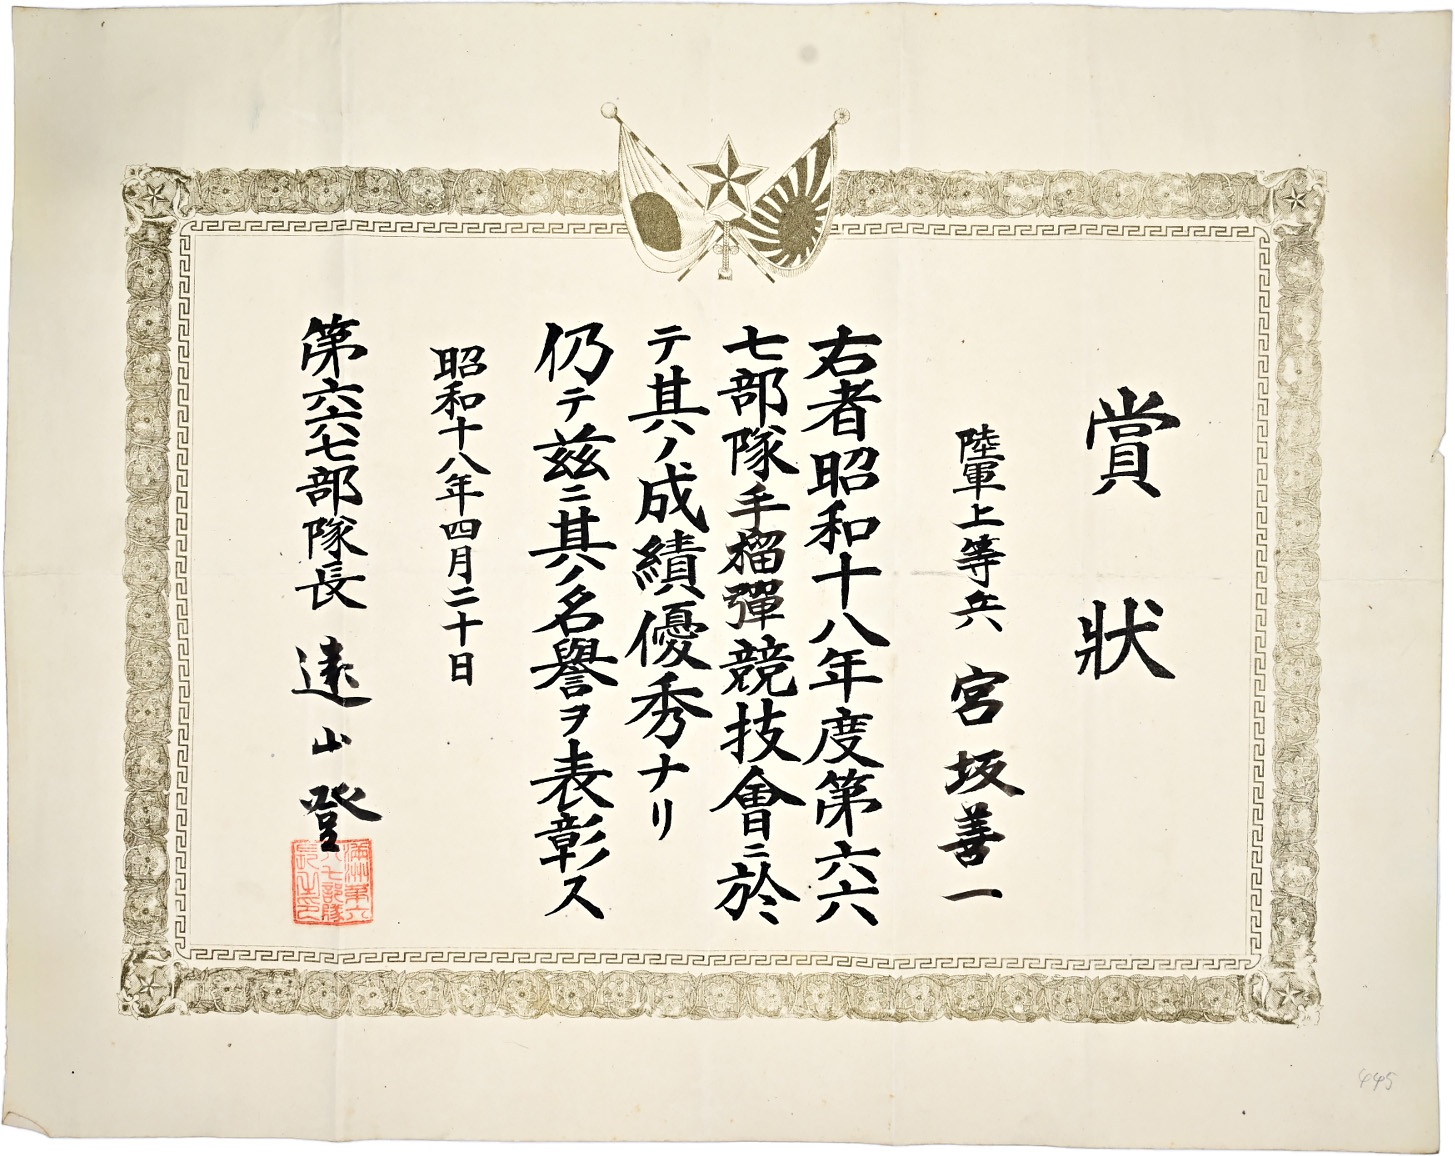 賞状
陸軍上等兵 宮坂善一
右者昭和十八年度第六六
七部隊手榴彈競技會ニ於
テ其ノ成績優秀ナリ
仍テ茲ニ其ノ名譽ヲ表彰ス
昭和十八年四月二十日
第六六七部隊長 遠山登
満洲第六
六七部隊
長之印
445